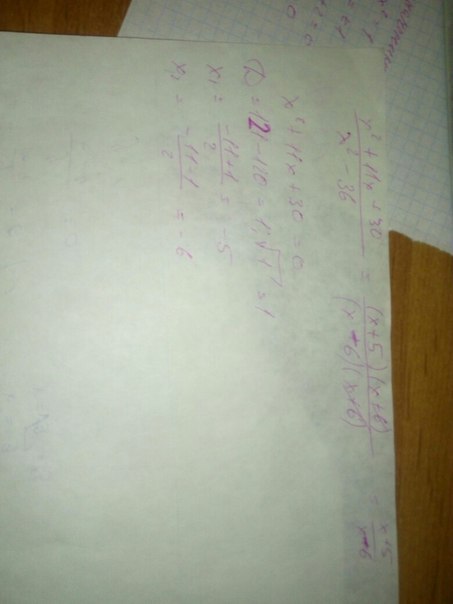 x² + 11x + 30 / x² - 36 = (x+5)(x+6) / (x-6)(x+6) = x+5 / x-6
x² + 11x + 30 = 0
D = 121 - 120 = 1, √1 = 1
x₁ = -11+1 / 2 = -5
x₂ = -11-1 / 2 = -6